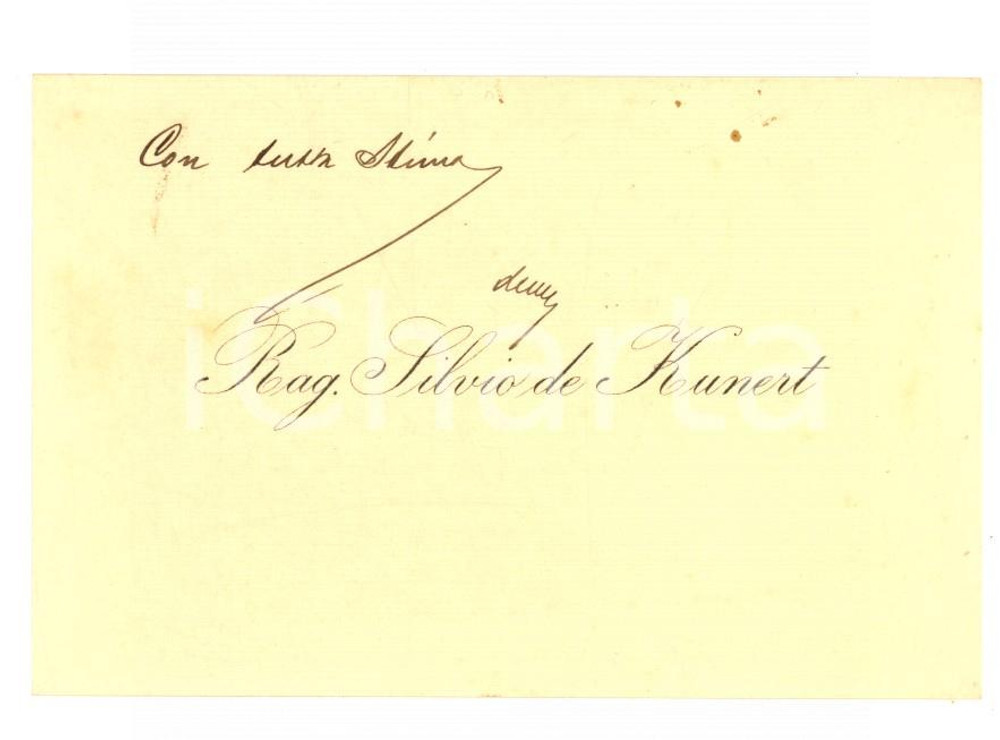 Con tutta Stima
Rag. Silvio de Kunert
iCharta